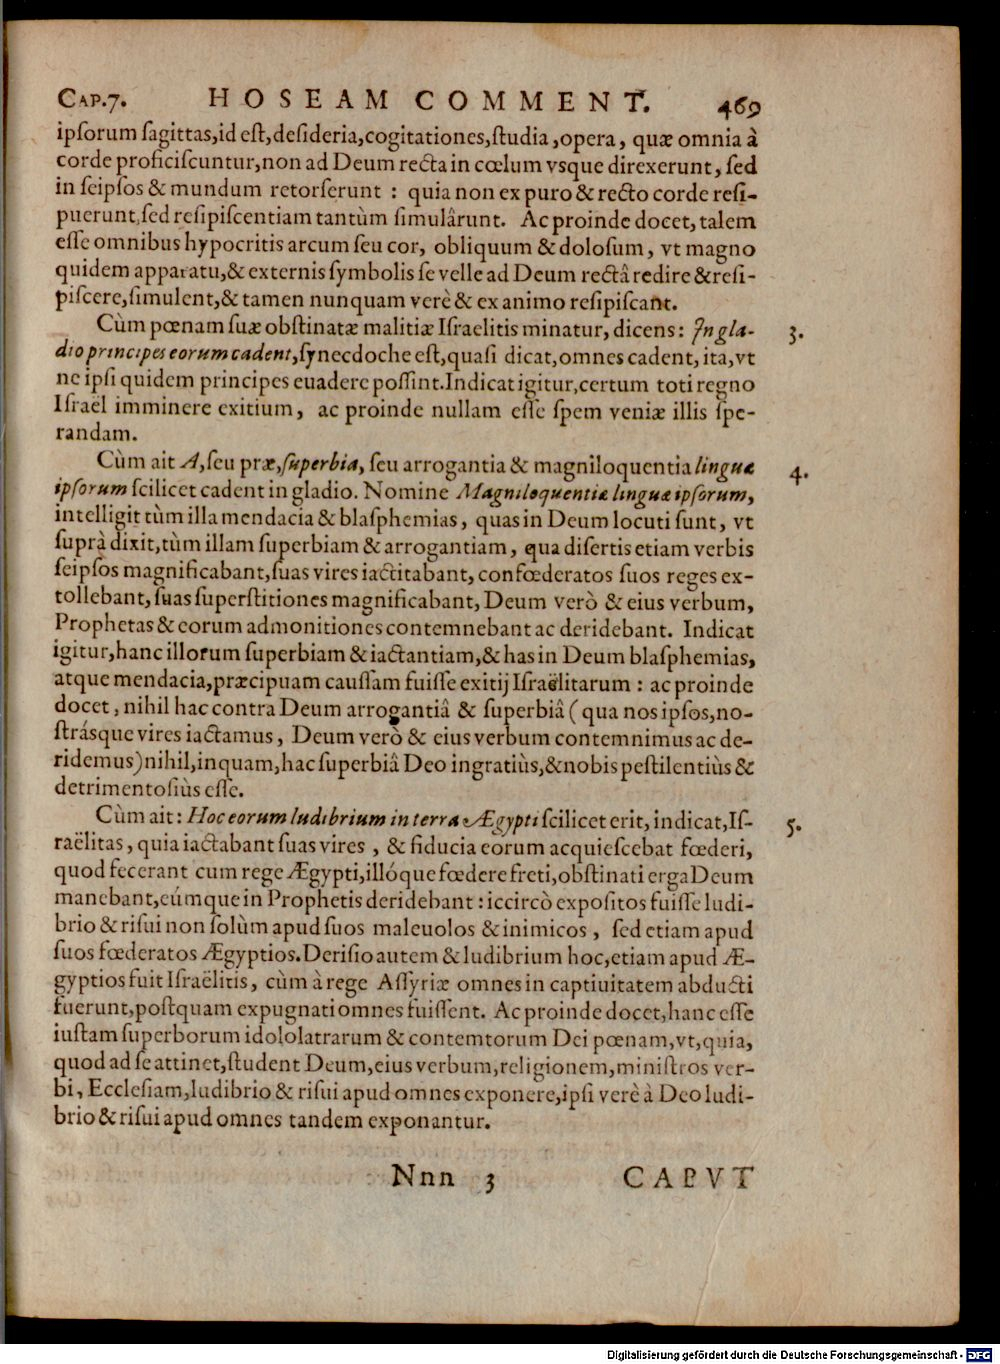 CAP.7. HOSEAM COMMENT. 469
ipſorum ſagittas,id eſt,deſideria,cogitationes,ſtudia,opera, quæ omnia à
corde proficiſcuntur,non ad Deum recta in cœlum vsque direxerunt, ſed
in ſeipſos & mundum retorſerunt : quia non ex puro & recto corde reſi-
puerunt,ſed reſipiſcentiam tantùm ſimulârunt. Ac proinde docet, talem
eſſe omnibus hypocritis arcum ſeu cor, obliquum & doloſum, vt magno
quidem apparatu,& externis ſymbolis ſe velle ad Deum rectâ redire & reſi-
piſcere,ſimulent,& tamen nunquam verè & ex animo reſipiſcant.
Cùm pœnam ſuæ obſtinatæ malitiæ Iſraelitis minatur, dicens: In gla- 3.
dio principes eorum cadent,ſynecdoche eſt,quaſi dicat,omnes cadent, ita,vt
ne ipſi quidem principes euadere poſſint.Indicat igitur,certum toti regno
Iſraël imminere exitium, ac proinde nullam eſſe ſpem veniæ illis ſpe-
randam.
Cùm ait A,ſeu præ,ſuperbia, ſeu arrogantia & magniloquentia linguæ 4.
ipſorum ſcilicet cadent in gladio. Nomine Magniloquentiæ linguæ ipſorum,
intelligit tùm illa mendacia & blaſphemias, quas in Deum locuti ſunt, vt
ſuprà dixit,tùm illam ſuperbiam & arrogantiam, qua diſertis etiam verbis
ſeipſos magnificabant,ſuas vires iactitabant, confœderatos ſuos reges ex-
tollebant, ſuas ſuperſtitiones magnificabant, Deum verò & eius verbum,
Prophetas & eorum admonitiones contemnebant ac deridebant. Indicat
igitur,hanc illorum ſuperbiam & iactantiam,& has in Deum blaſphemias,
atque mendacia,præcipuam cauſſam fuiſſe exitij Iſraëlitarum : ac proinde
docet, nihil hac contra Deum arrogantiâ & ſuperbiâ ( qua nos ipſos,no-
ſtrásque vires iactamus, Deum verò & eius verbum contemnimus ac de-
ridemus) nihil,inquam,hac ſuperbiâ Deo ingratiùs,& nobis peſtilentiùs &
detrimentoſiùs eſſe.
Cùm ait: Hoc eorum ludibrium in terra Ægypti ſcilicet erit, indicat,Iſ- 5.
raëlitas, quia iactabant ſuas vires, & fiducia eorum acquieſcebat fœderi,
quod fecerant cum rege Ægypti,illóque fœdere freti,obſtinati erga Deum
manebant,eúmque in Prophetis deridebant : iccircò expoſitos fuiſſe ludi-
brio & riſui non ſolùm apud ſuos maleuolos & inimicos, ſed etiam apud
ſuos fœderatos Ægyptios. Deriſio autem & ludibrium hoc,etiam apud Æ-
gyptios fuit Iſraëlitis, cùm à rege Aſſyriæ omnes in captiuitatem abducti
fuerunt,poſtquam expugnati omnes fuiſſent. Ac proinde docet,hanc eſſe
iuſtam ſuperborum idololatrarum & contemtorum Dei pœnam,vt,quia,
quod ad ſe attinet,ſtudent Deum,eius verbum,religionem,miniſtros ver-
bi, Eccleſiam,ludibrio & riſui apud omnes exponere,ipſi verè à Deo ludi-
brio & riſui apud omnes tandem exponantur.
Nnn 3 CAPVT
Digitalisierung gefördert durch die Deutsche Forschungsgemeinschaft - DFG